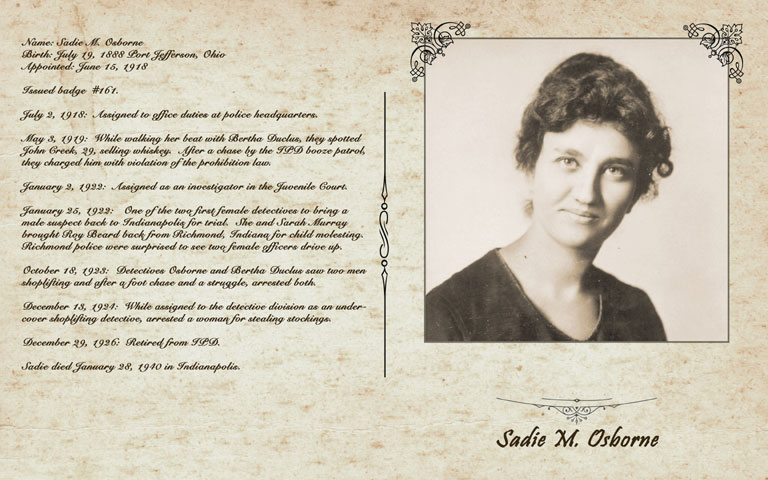 Name: Sadie M. Osborne
Birth: July 19, 1888 Port Jefferson, Ohio
Appointed: June 15, 1918
Issued badge #161.
July 2, 1918: Assigned to office duties at police headquarters.
May 3, 1919: While walking her beat with Bertha Duclus, they spotted
John Creek, 29, selling whiskey. After a chase by the IPD booze patrol,
they charged him with violation of the prohibition law.
January 2, 1922: Assigned as an investigator in the Juvenile Court.
January 25, 1922: One of the two first female detectives to bring a
male suspect back to Indianapolis for trial. She and Sarah Murray
brought Roy Beard back from Richmond, Indiana for child molesting.
Richmond police were surprised to see two female officers drive up.
October 18, 1923: Detectives Osborne and Bertha Duclus saw two men
shoplifting and after a foot chase and a struggle, arrested both.
December 13, 1924: While assigned to the detective division as an under-
cover shoplifting detective, arrested a woman for stealing stockings.
December 29, 1926: Retired from IPD.
Sadie died January 28, 1940 in Indianapolis.
Sadie M. Osborne